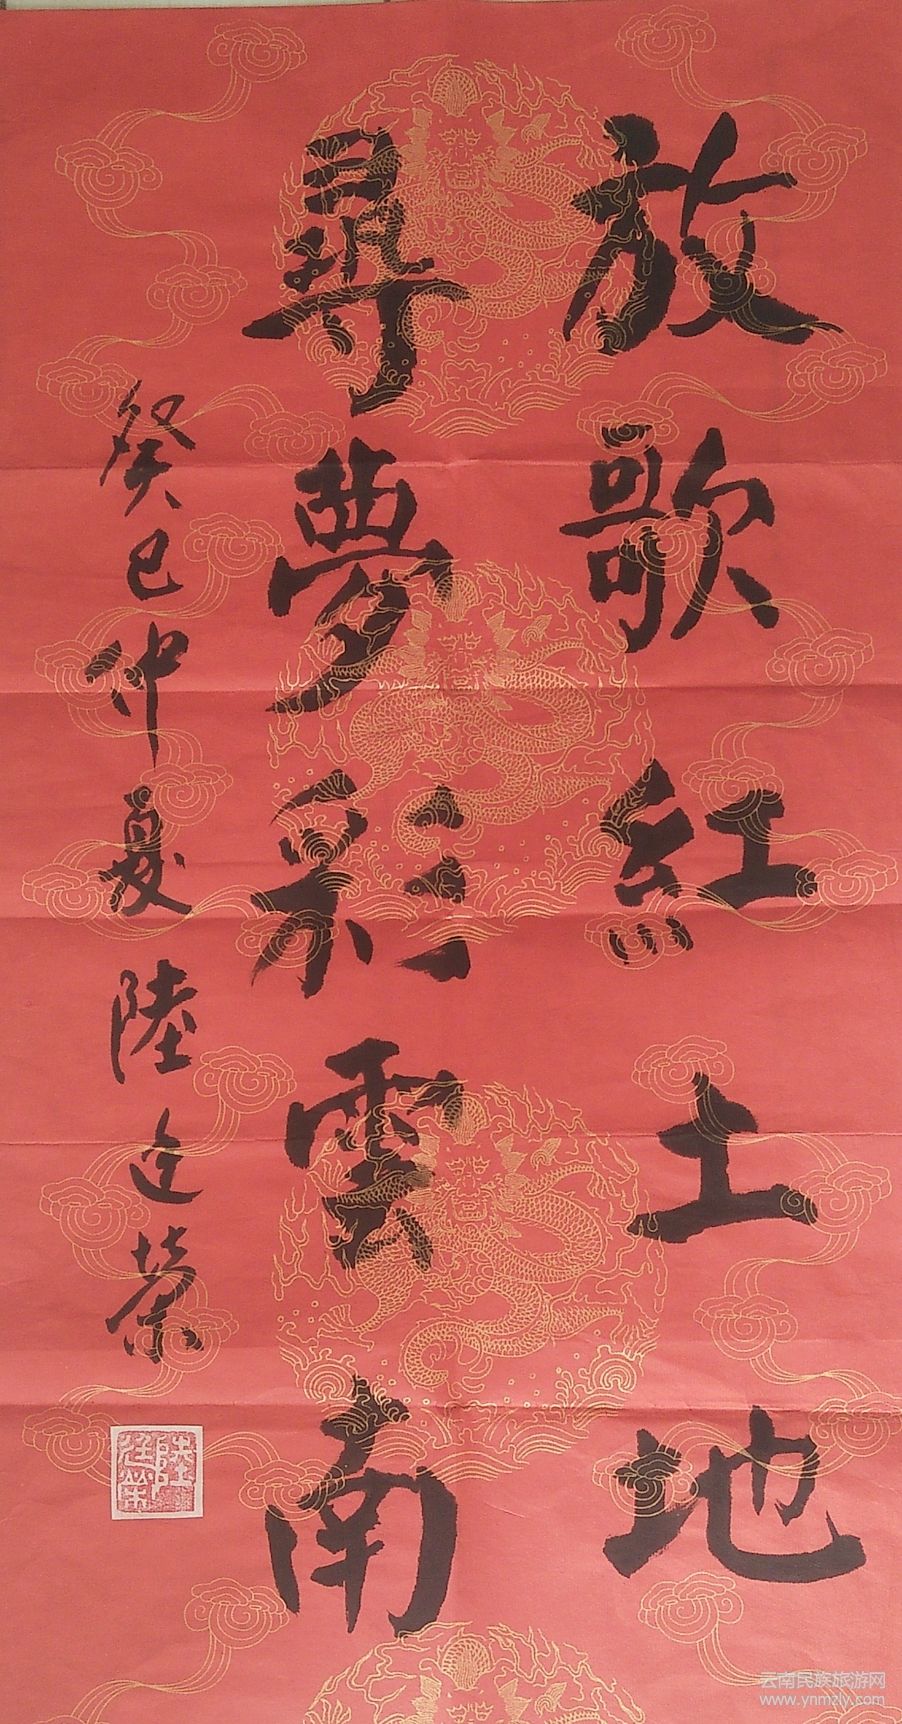 放歌紅土地
尋夢彩雲南
癸巳仲夏 陸廷榮
陸廷榮
云南民族旅游网
www.ynmzly.com